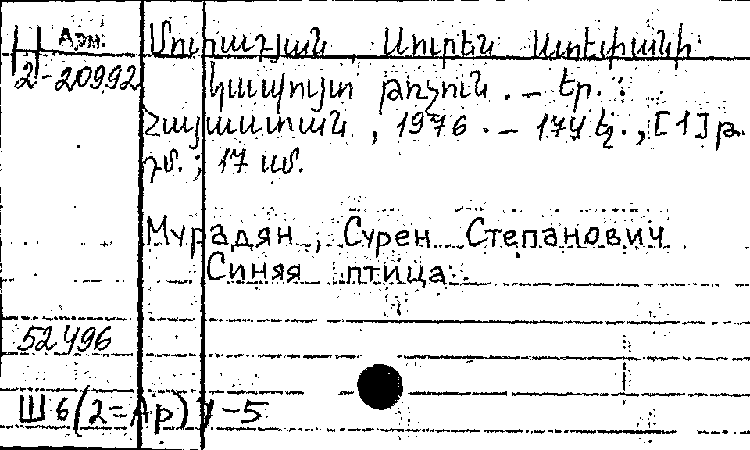 Арм. Մուրադյան, Սուրեն Ստեփանի
2-20992 Կապույտ թռչուն. – Եր.:
Հայաստան, 1976. – 174 էջ., [1] թ.
դմ.; 17 սմ.
Мурадян, Сурен Степанович
Синяя птица.
52496
Ш6(2=Ар)7-5